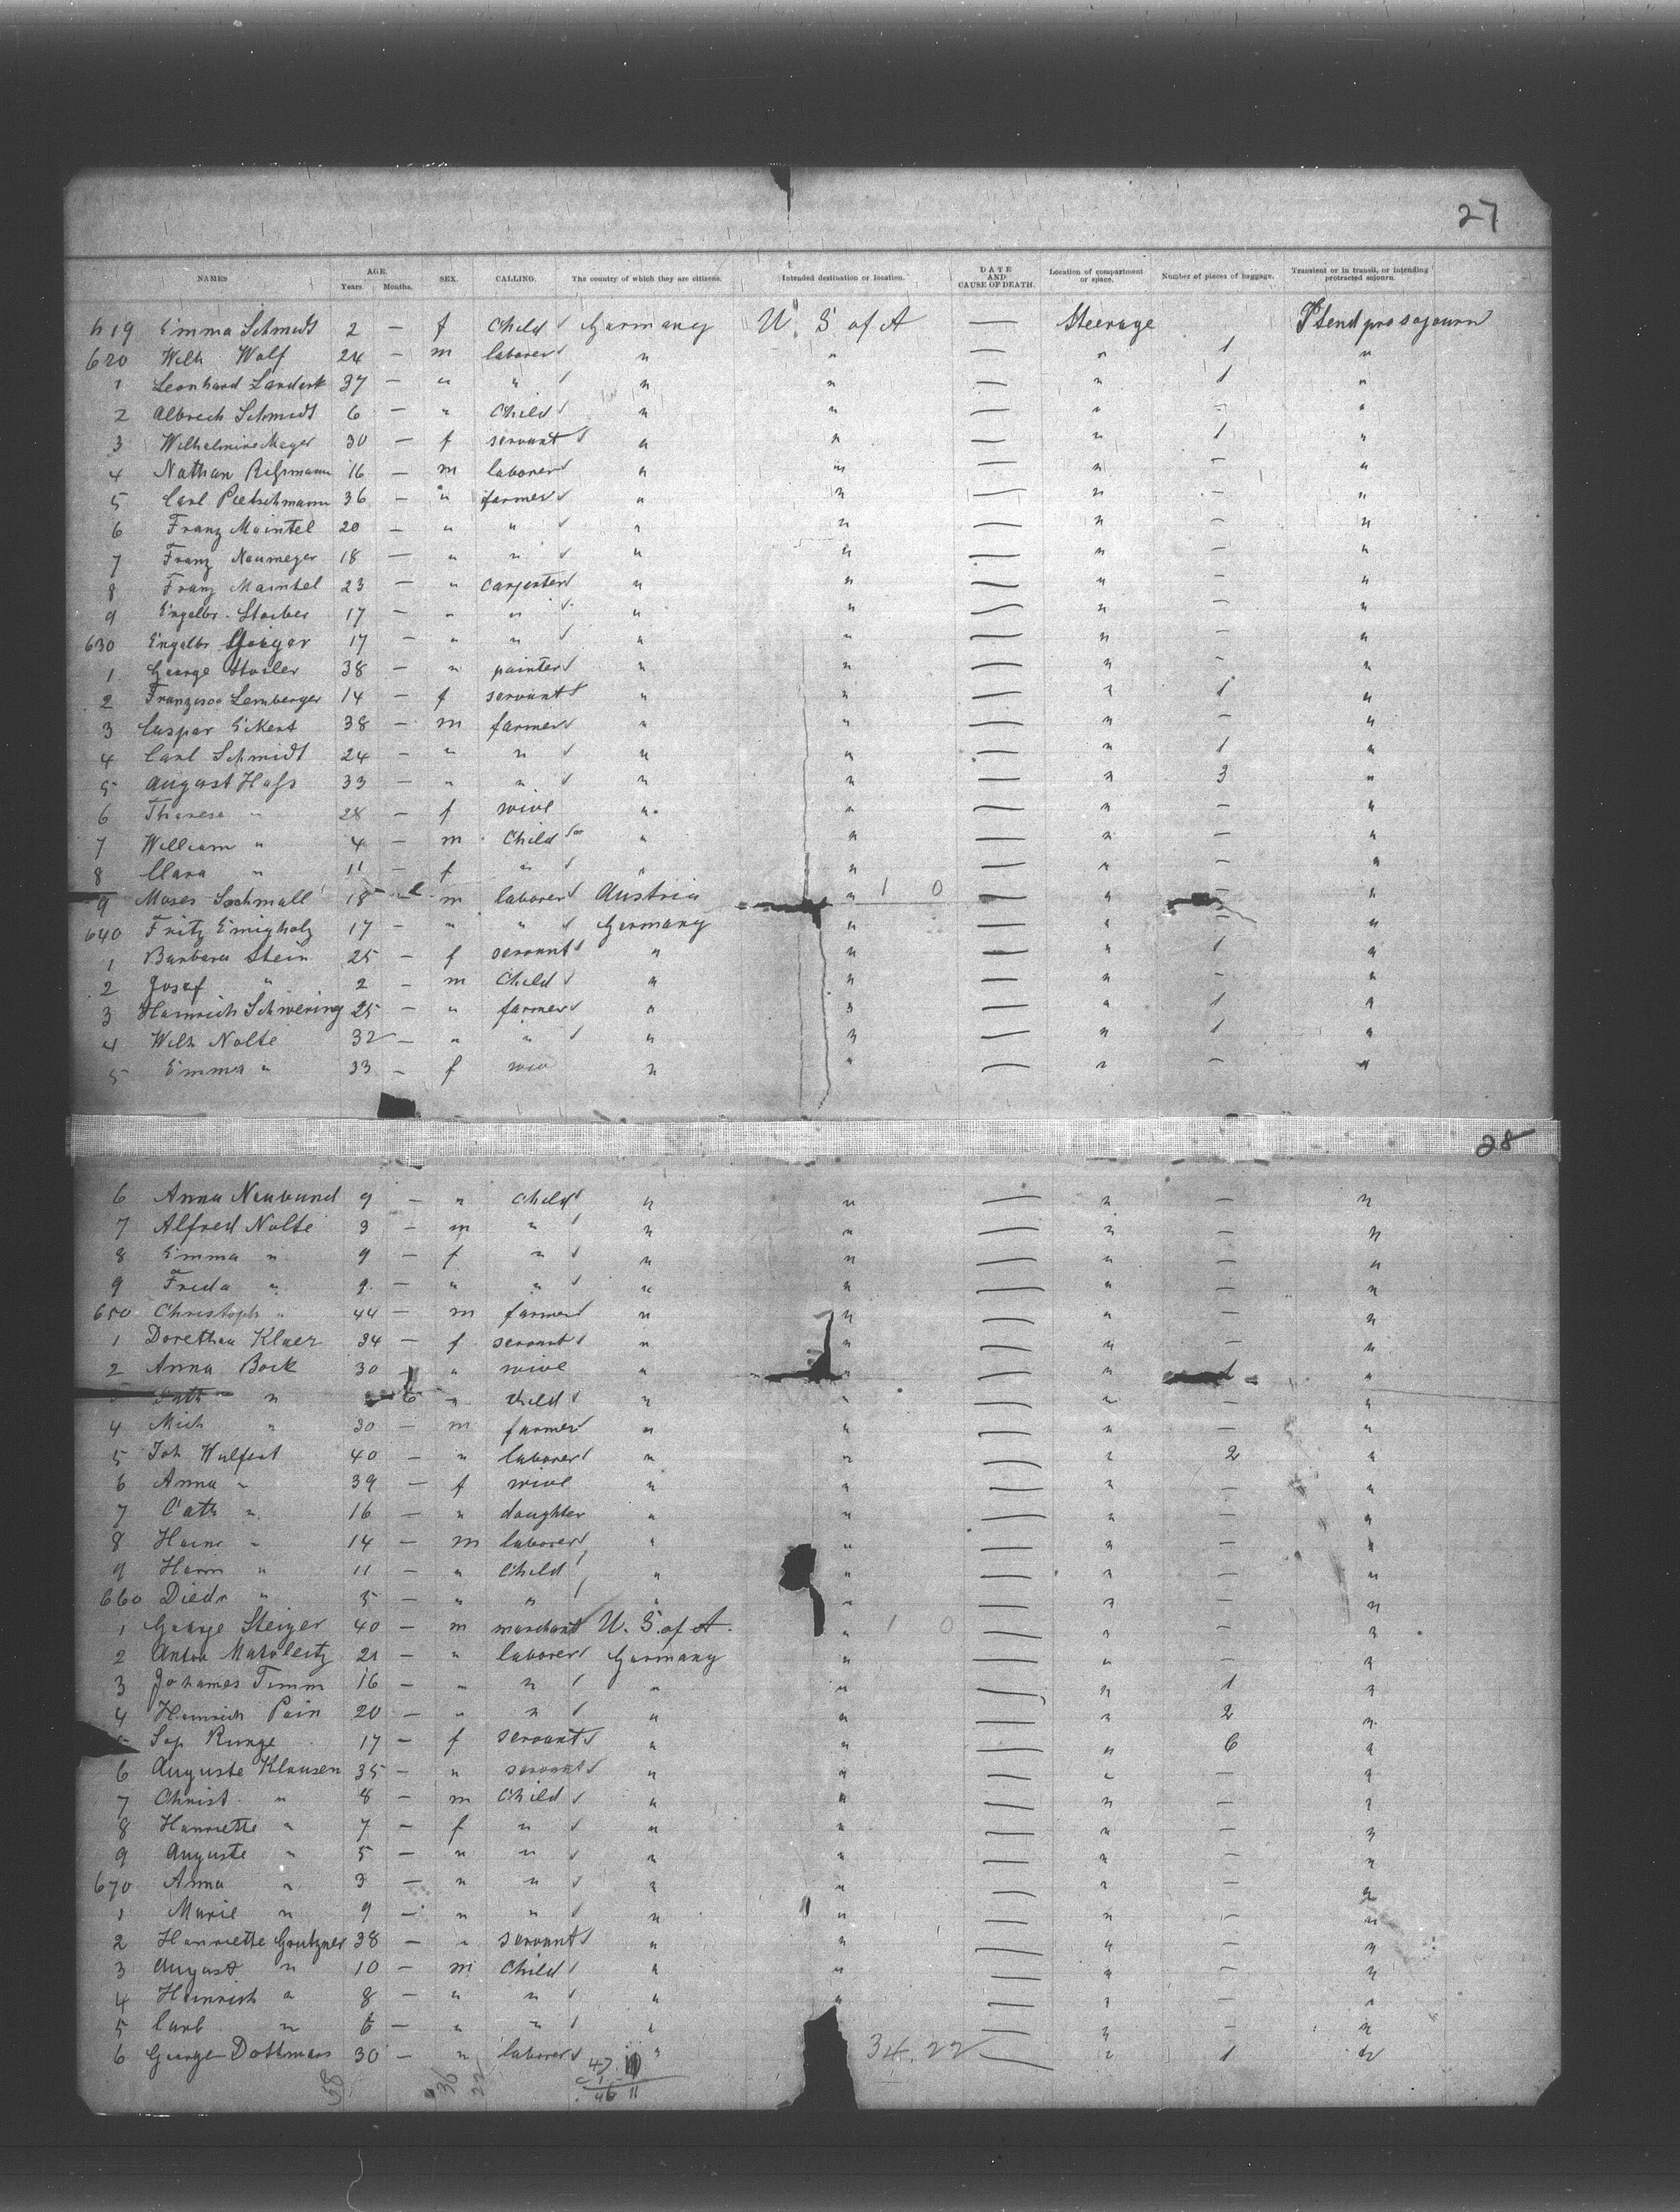 27
NAMES AGE. Years. Months. SEX. CALLING. The country of which they are citizens. Intended destination or location. DATE AND CAUSE OF DEATH. Location of compartment or space. Number of pieces of baggage. Transient or in transit, or intending protracted sojourn.
619 Emma Schmidt 2 — f Child Germany U. S of A — Steerage
620 Wilh Wolf 24 — m laborer " " — " 1 "
1 Leonhard 37 — " " " " — " 1 "
2 Albrech Schmidt 6 — " Child " " — " – "
3 Wilhelmine Meyer 30 — f servant " " — " 1 "
4 Nathan 16 — m laborer " " — " – "
5 Carl Pietschmann 36 — " farmer " " — " – "
6 Franz Maintel 20 — " " " " — " – "
7 Franz Neumeyer 18 — " " " " — " – "
8 Franz Maintel 23 — " carpenter " " — " – "
9 Engelbr. Stoiber 17 — " " " " — " – "
630 Engelbr Geiger 17 — " " " " — " – "
1 George 38 — " painter " " — " – "
2 Lemberger 14 — f servant " " — " 1 "
3 Caspar Eikert 38 — m farmer " " — " – "
4 Carl Schmidt 24 — " " " " — " 1 "
5 August Hass 33 — " " " " — " 3 "
6 Therese " 28 — f wive " " — " – "
7 William " 4 — m Child " " — " – "
8 Clara " 11 — f " " " — " – "
9 Moses Schmall 18 — m laborer Austria " 1 0 — " – "
640 Fritz Emigholz 17 — " " Germany " — " – "
1 Barbara Stein 25 — f servant " " — " 1 "
2 Josef " 2 — m Child " " — " – "
3 Heinrich Schwering 25 — " farmer " " — " 1 "
4 Wilh Nolte 32 — " " " " — " 1 "
5 Emma " 33 — f wive " " — " – "
28
6 Anna Neubund 9 — " Child " " — " – "
7 Alfred Nolte 3 — m " " " — " – "
8 Emma " 9 — f " " " — " – "
9 Freda " 9 — " " " " — " – "
650 Christoph " 44 — m farmer " " — " – "
1 Dorethea Klaer 34 — f servant " " — " – "
2 Anna Bock 30 — " wive " " — " "
" 6 " child " " — " – "
4 Mich " 30 — m farmer " " — " – "
5 Joh Wulfert 40 — " laborer " " — " 2 "
6 Anna " 39 — f wive " " — " – "
7 Cath " 16 — " daughter " " — " – "
8 Heinr " 14 — m laborer " " — " – "
9 Herm " 11 — " Child " " — " – "
660 Diedr " 5 — " " " " — " – "
1 George Steiger 40 — m merchant U. S. of A. " 1 0 — " – "
2 Anton 21 — " laborer Germany " — " – "
3 Johannes Timm 16 — " " " " — " 1 "
4 Heinrich Pein 20 — " " " " — " 2 "
Sop Runge 17 — f servant " " — " 6 "
6 Auguste Klausen 35 — " servant " " — " – "
7 Christ. " 8 — m Child " " — " – "
8 Henriette " 7 — f " " " — " – "
9 Auguste " 5 — " " " " — " – "
670 Anna " 3 — " " " " — " – "
1 Marie " 9 — " " " " — " – "
2 Henriette Grutzner 38 — " servant " " — " – "
3 August " 10 — m Child " " — " – "
4 Heinrich " 8 — " " " " — " – "
5 Carl " 6 — " " " — " – "
6 George Dottmers 30 — " laborer " 34.22 — " 1 "
58 36 22 47
46 11